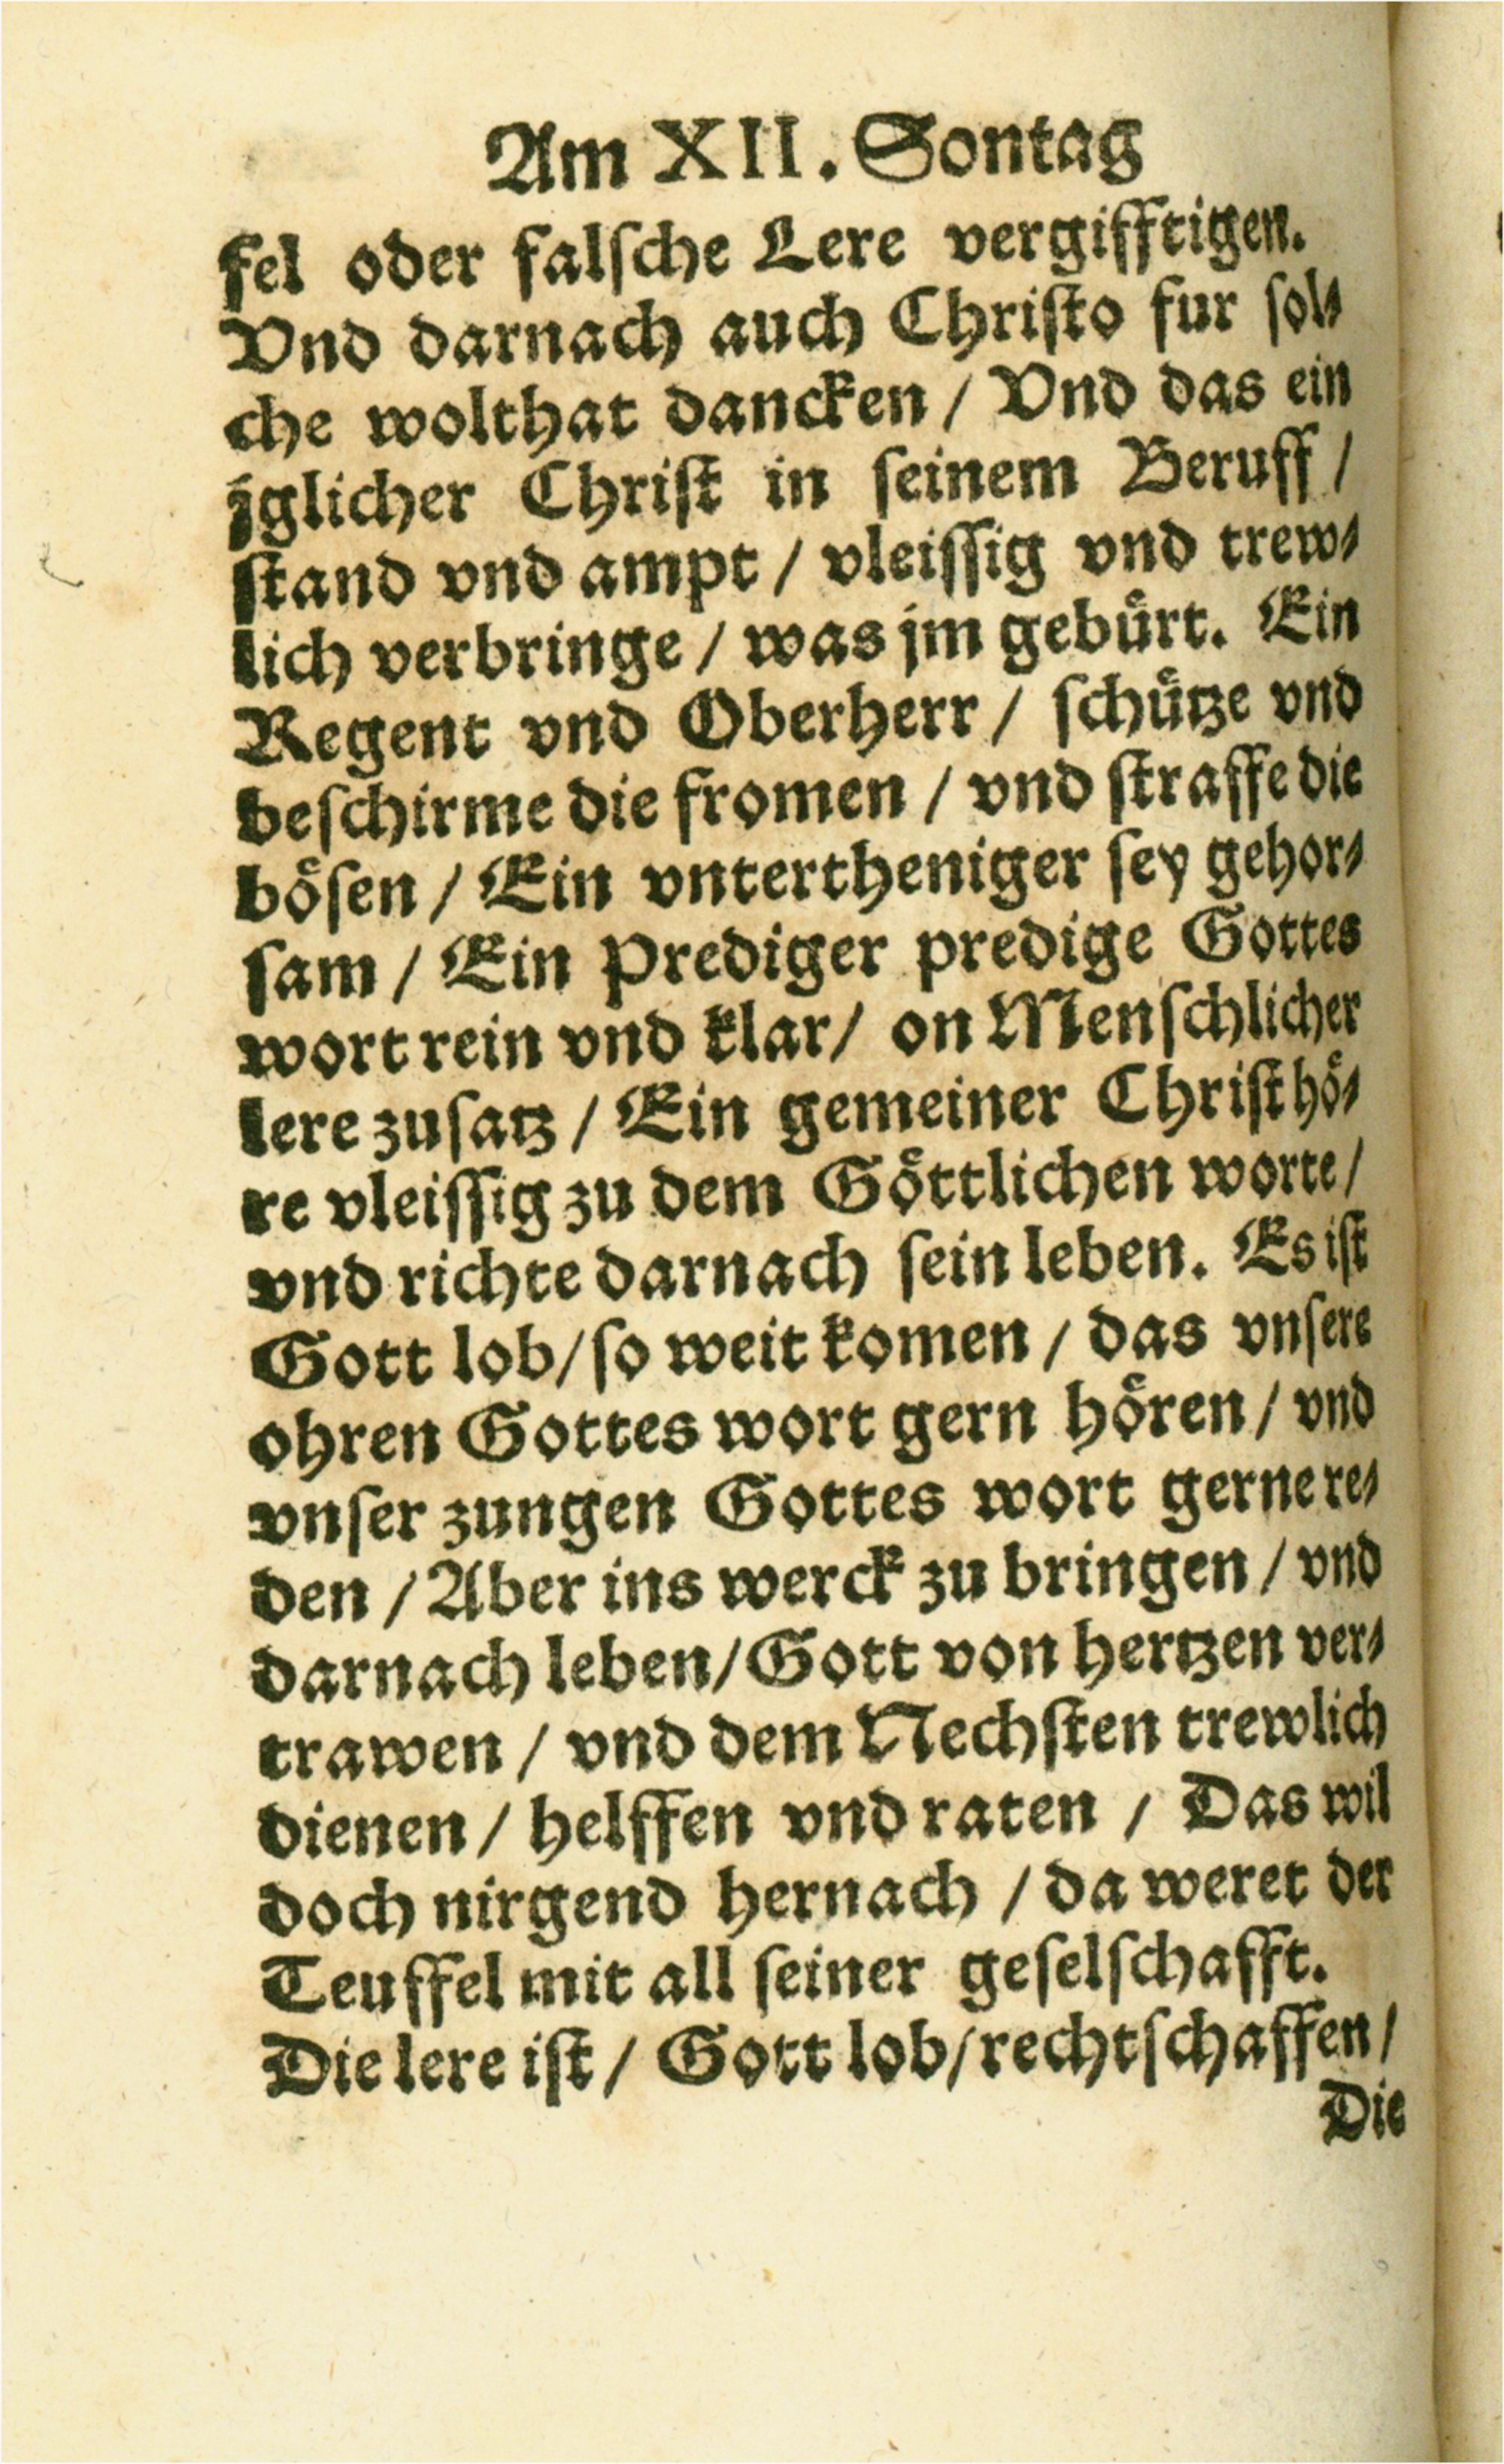 Am XII. Sontag
fel oder falſche Lere vergifftigen.
Vnd darnach auch Chriſto fur ſol⸗
che wolthat dancken / Vnd das ein
jglicher Chriſt in ſeinem Beruff /
ſtand vnd ampt / vleiſſig vnd trew⸗
lich verbringe / was jm gebuͤrt. Ein
Regent vnd Oberherr / ſchuͤtze vnd
beſchirme die fromen / vnd ſtraffe die
boͤſen / Ein vntertheniger ſey gehor⸗
ſam / Ein Prediger predige Gottes
wort rein vnd klar / on Menſchlicher
lere zuſatz / Ein gemeiner Chriſt hoͤ⸗
re vleiſſig zu dem Goͤttlichen worte /
vnd richte darnach ſein leben. Es iſt
Gott lob / ſo weit komen / das vnſere
ohren Gottes wort gern hoͤren / vnd
vnſer zungen Gottes wort gerne re⸗
den / Aber ins werck zu bringen / vnd
darnach leben / Gott von hertzen ver⸗
trawen / vnd dem Nechſten trewlich
dienen / helffen vnd raten / Das wil
doch nirgend hernach / da weret der
Teuffel mit all ſeiner geſelſchafft.
Die lere iſt / Gott lob / rechtſchaffen /
Die